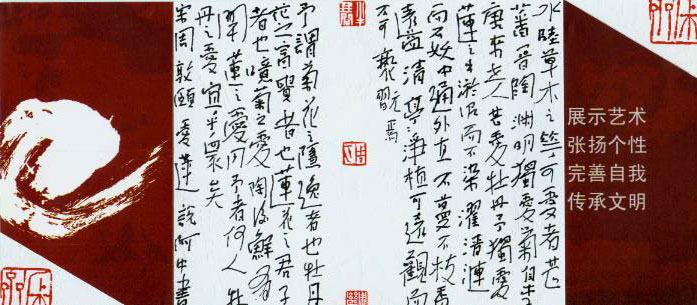 水陸草木之花可爱者甚
蕃晋陶渊明獨爱菊自李
唐来世人甚爱牡丹予獨爱
蓮之出淤泥而不染濯清漣
而不妖中通外直不蔓不枝香
遠益清亭亭净植可遠觀而
不可褻翫焉
予謂菊花之隱逸者也牡丹
花之富貴者也蓮花之君子
者也噫菊之爱陶後鮮有
聞蓮之爱同予者何人牡
丹之爱宜乎衆矣
宋周敦頤爱蓮說阿中書
展示艺术
张扬个性
完善自我
传承文明